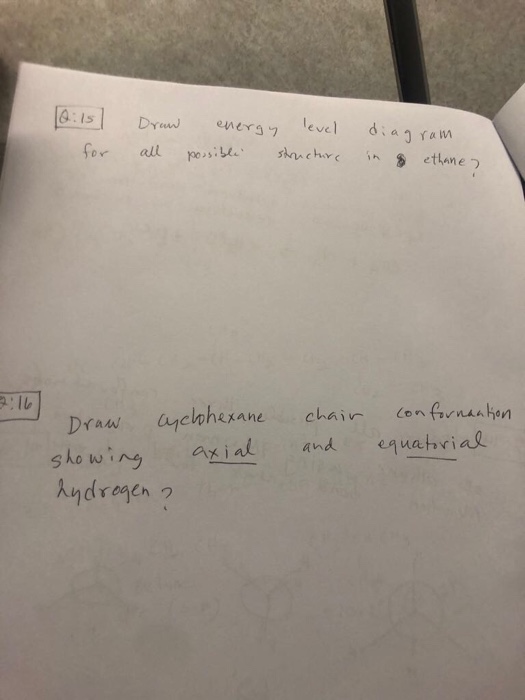 Q:15 Draw energy level diagram
for all possible structure in ethane?
Q:16
Draw cyclohexane chair conformation
showing axial and equatorial
hydrogen?